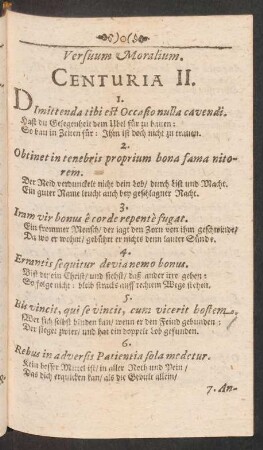 Versuum Moralium.
CENTURIA II.
1.
DImittenda tibi est Occasio nulla cavendi.
Hast du Gelegenheit dem Übel für zu bauen:
So bau in Zeiten für: Ihm ist doch nicht zu trauen.
2.
Obtinet in tenebris proprium bona fama nito-
rem.
Der Neid verdunckele nicht dein Lob/ durch List und Macht.
Ein guter Name leucht auch bey geschlagner Nacht.
3.
Iram vir bonus è corde repentè fugat.
Ein frommer Mensch/ der jagt den Zorn von ihm geschwinde/
Da wo er wohnt/ gebühret er nichts denn lauter Sünde.
4.
Errantis sequitur devia nemo bonus.
Bist du ein Christ/ und siehst/ daß ander irre gehen:
So folge nicht: bleib straks auff rechtem Wege stehen.
5.
Bis vincit, qui se vincit, cum vicerit hostem.
Wer sich selbst binden kan/ wenn er den Feind gebunden:
Der sieget zwier/ und hat ein doppelt Lob gefunden.
6.
Rebus in adversis Patientia sola medetur.
Kein besser Mittel ist/ in aller Noth und Pein/
Das dich erquicken kan/ als die Gedult allein/
7. An-